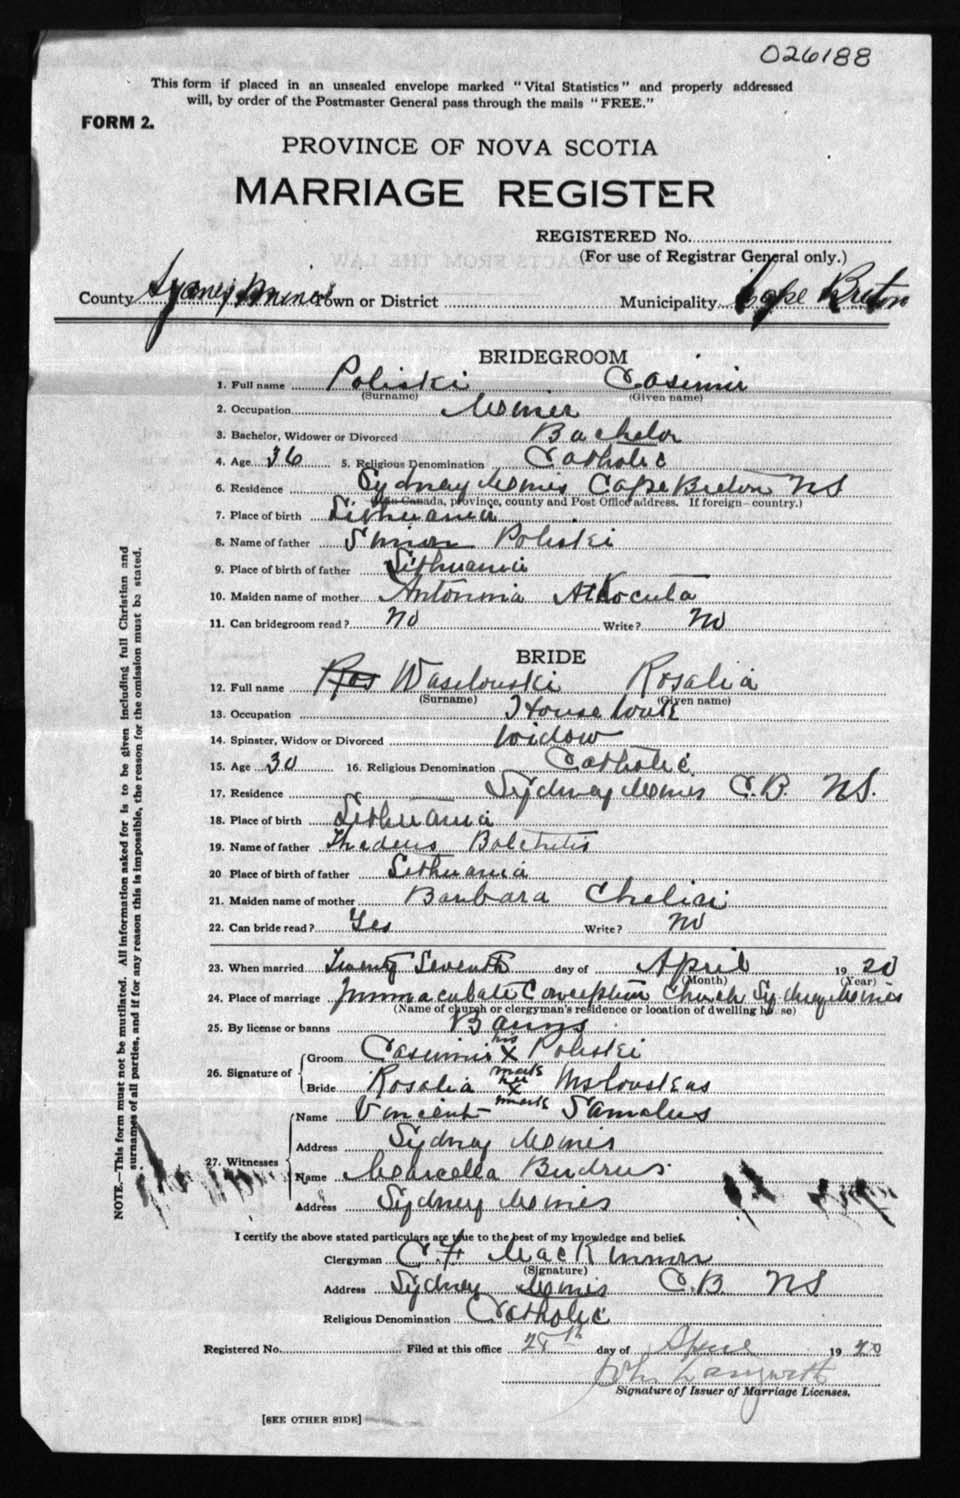 026188
This form if placed in an unsealed envelope marked "Vital Statistics" and properly addressed
will, by order of the Postmaster General pass through the mails "FREE."
FORM 2.
PROVINCE OF NOVA SCOTIA
MARRIAGE REGISTER
REGISTERED No.
(For use of Registrar General only.)
County Sydney Mines Town or District Municipality Cape Breton
BRIDEGROOM
1. Full name Poliski Casimir
(Surname) (Given name)
2. Occupation Miner
3. Bachelor, Widower or Divorced Bachelor
4. Age 36 5. Religious Denomination Catholic
6. Residence Sydney Mines Cape Breton NS
(In Canada, province, county and Post Office address. If foreign—country.)
7. Place of birth Lithuania
8. Name of father Simon Poliski
9. Place of birth of father Lithuania
10. Maiden name of mother Antonina
11. Can bridegroom read? No Write? No
BRIDE
12. Full name Ros Waselouski Rosalia
(Surname) (Given name)
13. Occupation House Work
14. Spinster, Widow or Divorced Widow
15. Age 30 16. Religious Denomination Catholic
17. Residence Sydney Mines C.B. NS.
18. Place of birth Lithuania
19. Name of father Thadeus
20 Place of birth of father Lithuania
21. Maiden name of mother Barbara
22. Can bride read? Yes Write? No
23. When married Twenty Seventh day of April 1920
(Month) (Year)
24. Place of marriage Immaculate Conception Church Sydney Mines
(Name of church or clergyman's residence or location of dwelling house)
25. By license or banns Banns
his
26. Signature of Groom Casimir X Poliski
mark
her
Bride Rosalia X
mark
27. Witnesses Name Vincent
Address Sydney Mines
Name Marcella Budrus
Address Sydney Mines
I certify the above stated particulars are true to the best of my knowledge and belief.
Clergyman C. F. MacKinnon
(Signature)
Address Sydney Mines C.B. NS
Religious Denomination Catholic
Registered No. Filed at this office 28th day of April 1920
John
Signature of Issuer of Marriage Licenses.
[SEE OTHER SIDE]
NOTE.—This form must not be mutilated. All information asked for is to be given including full Christian and
surnames of all parties, and if for any reason this is impossible, the reason for the omission must be stated.